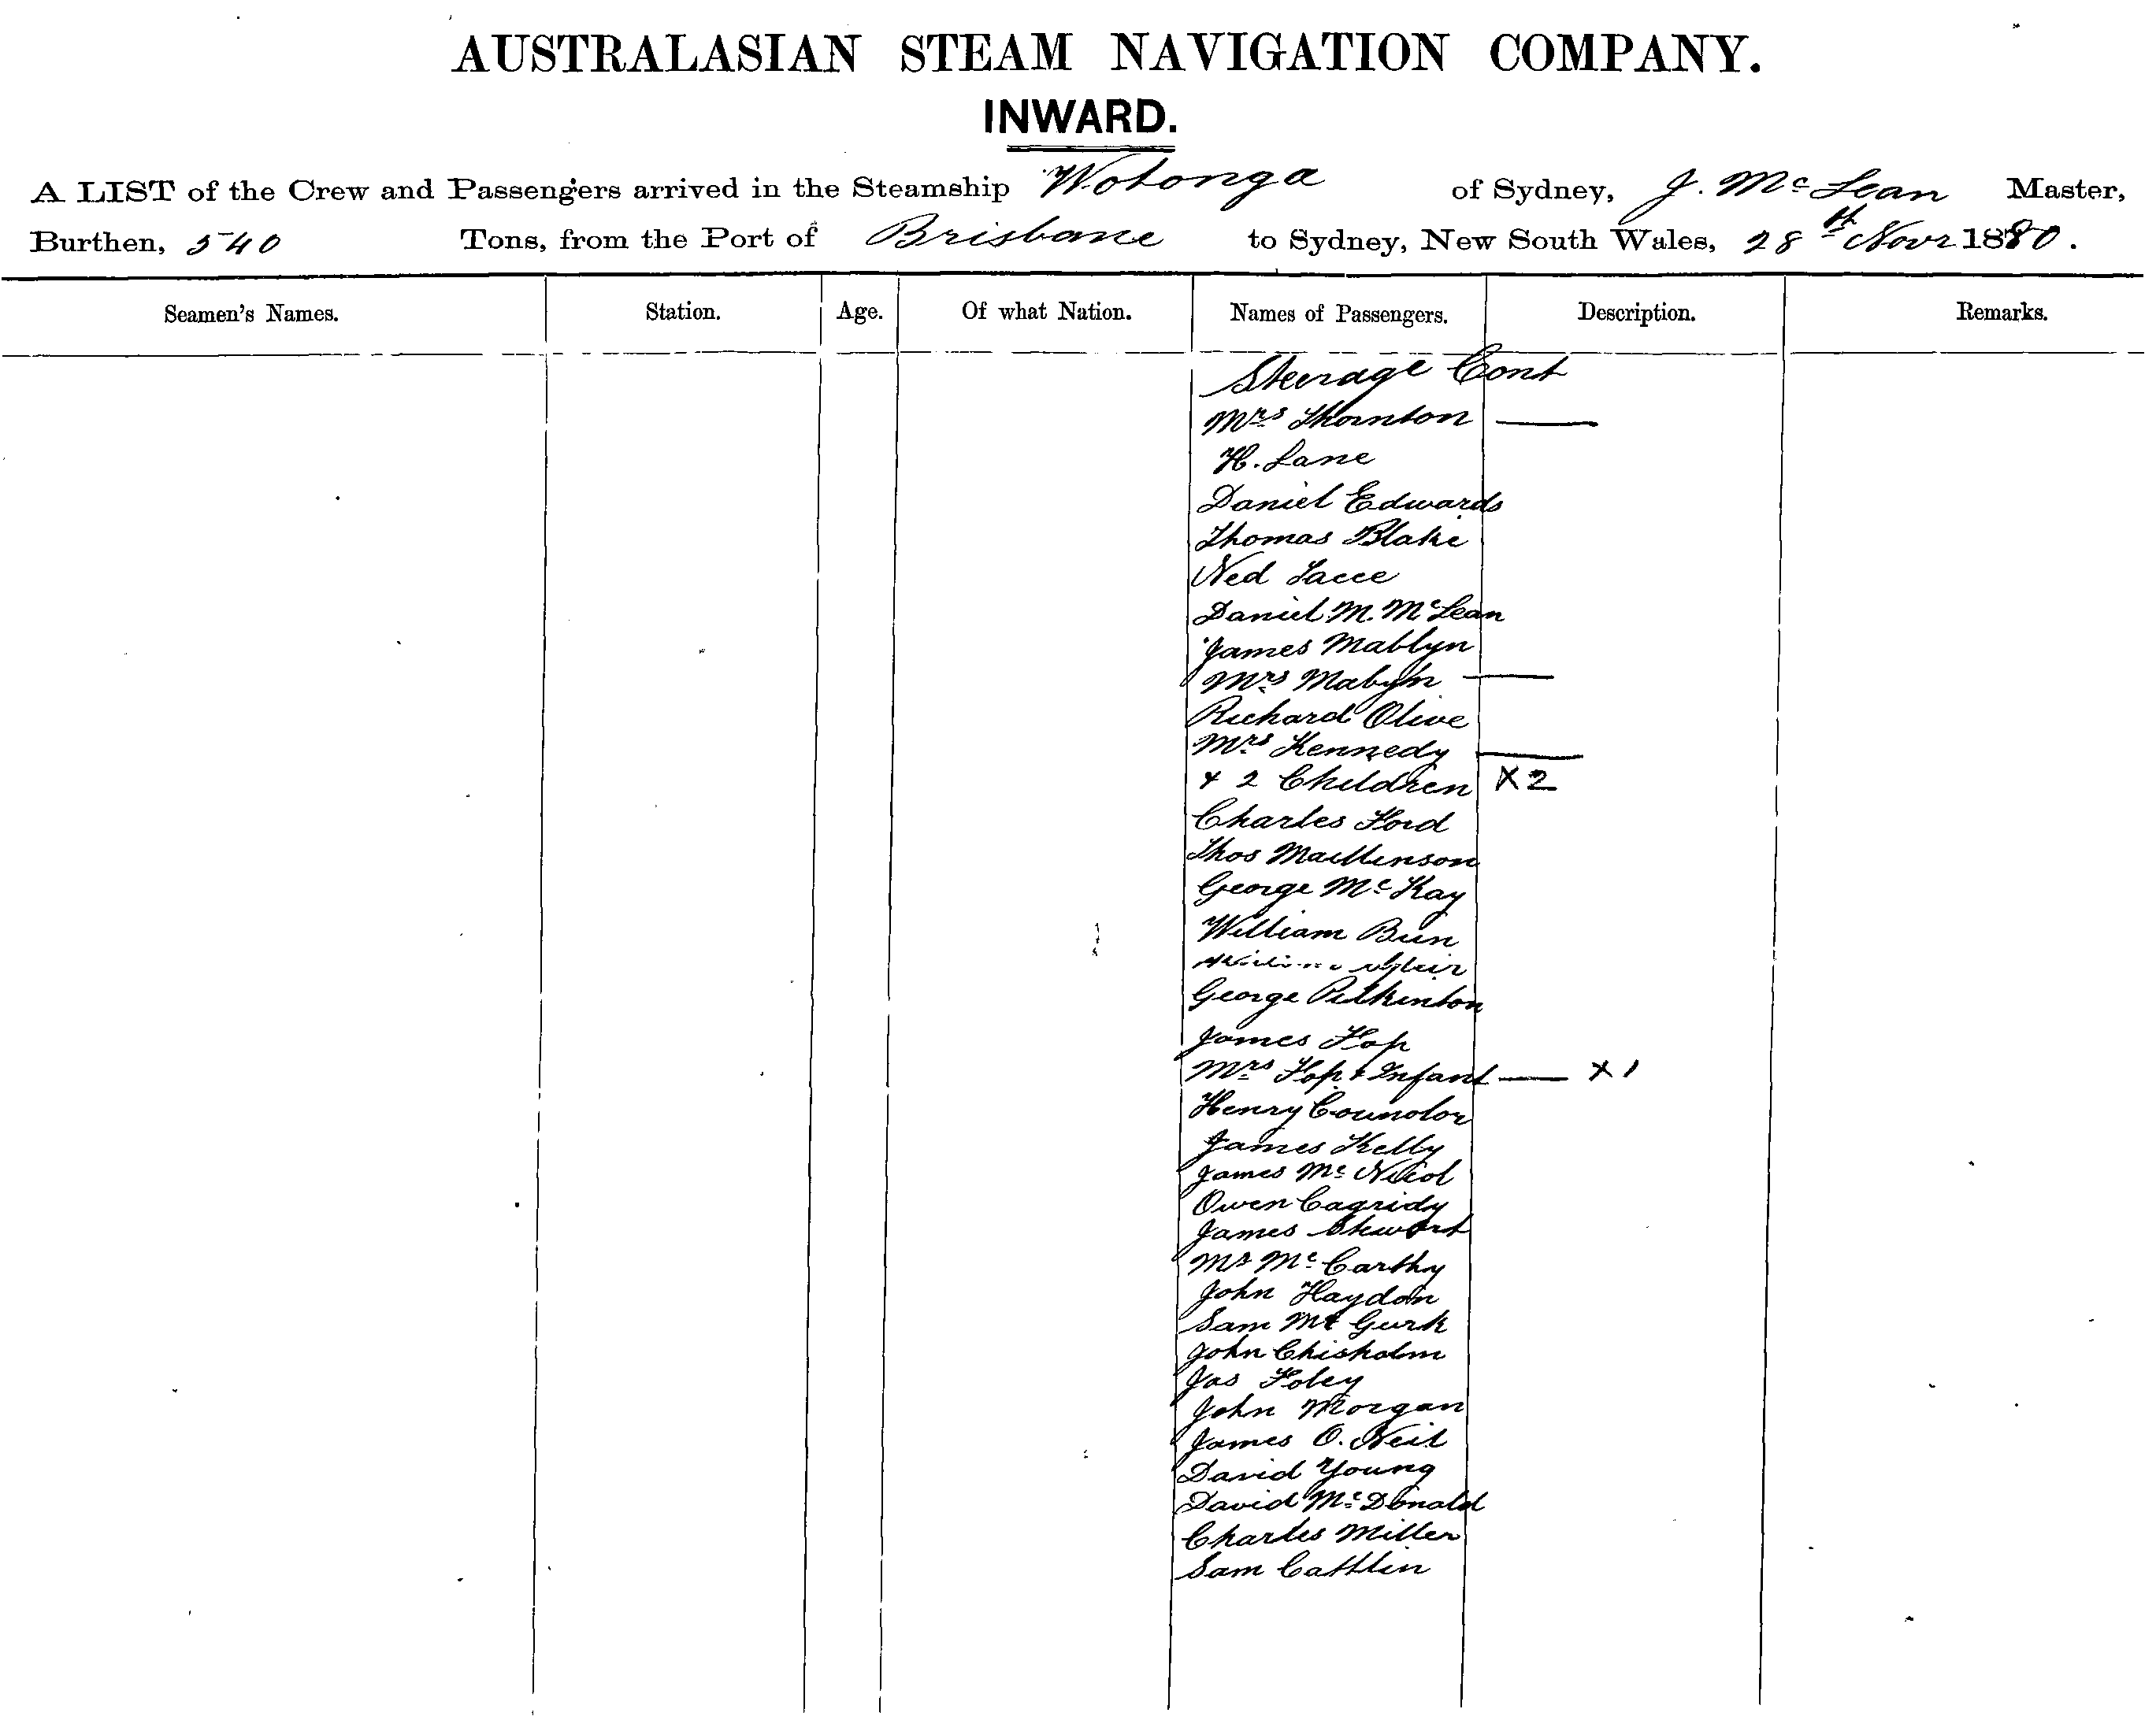 AUSTRALASIAN STEAM NAVIGATION COMPANY.
INWARD.
A LIST of the Crew and Passengers arrived in the Steamship Wotonga of Sydney, J. McLean Master,
Burthen, 540 Tons, from the Port of Brisbane to Sydney, New South Wales, 28th Novr 1880.
Seamen's Names. Station. Age. Of what Nation. Names of Passengers. Description. Remarks.
Steerage Cont
Mrs Thornton —
H. Lane
Daniel Edwards
Thomas Blake
Ned
Daniel M. McLean
James Mablyn
Mrs Mabyn —
Richard Olive
Mrs Kennedy —
+ 2 Children X2
Charles Ford
Thos
George McKay
William
George Pilkinton
James
Mrs + Infant — X1
Henry
James Kelly
James McNicol
Owen
James Stewart
McCarthy
John Haydon
Sam McGurk
John Chisholm
Jas Foley
John Morgan
James O. Neil
David Young
David McDonald
Charles Miller
Sam